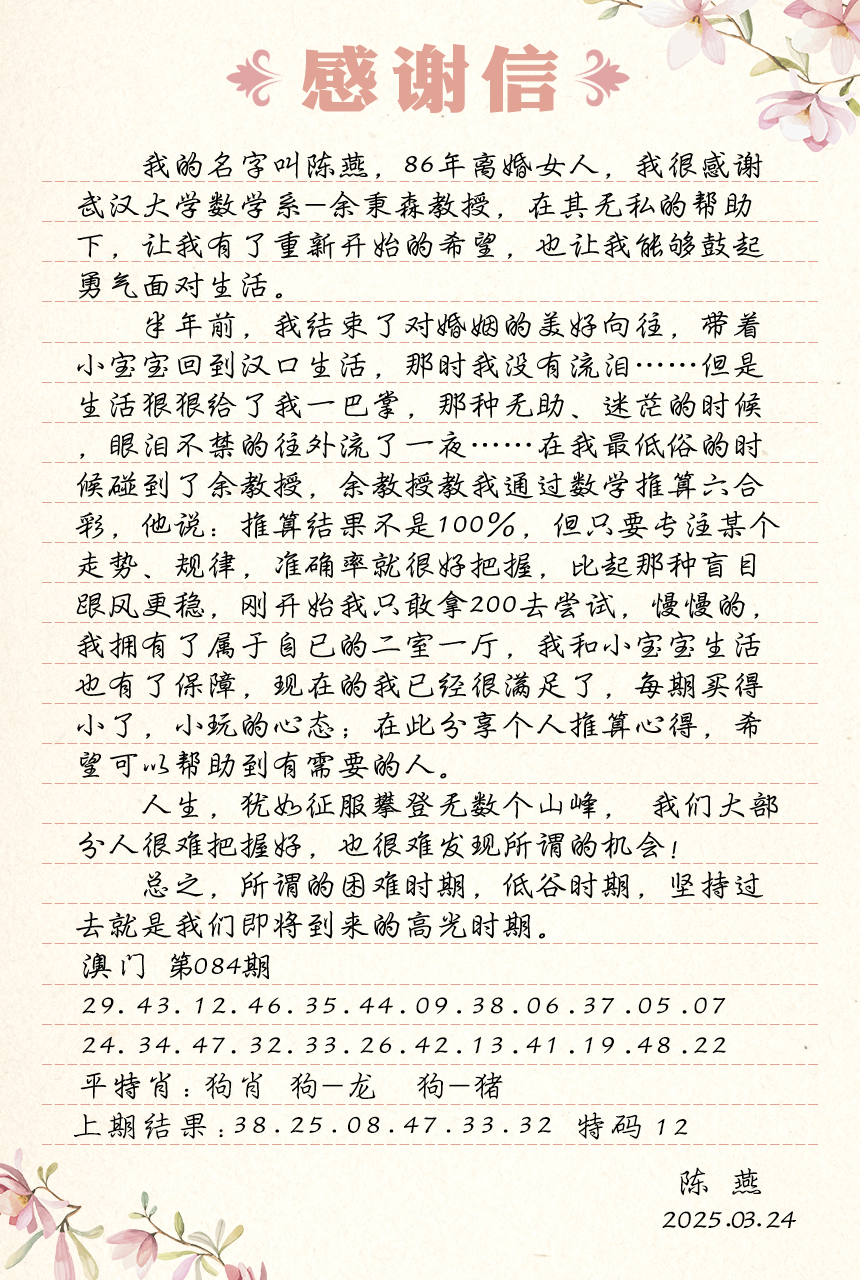 感谢信
我的名字叫陈燕，86年离婚女人，我很感谢
武汉大学数学系—余秉森教授，在其无私的帮助
下，让我有了重新开始的希望，也让我能够鼓起
勇气面对生活。
半年前，我结束了对婚姻的美好向往，带着
小宝宝回到汉口生活，那时我没有流泪……但是
生活狠狠给了我一巴掌，那种无助、迷茫的时候
，眼泪不禁的往外流了一夜……在我最低俗的时
候碰到了余教授，余教授教我通过数学推算六合
彩，他说：推算结果不是100%，但只要专注某个
走势、规律，准确率就很好把握，比起那种盲目
跟风更稳，刚开始我只敢拿200去尝试，慢慢的，
我拥有了属于自已的二室一厅，我和小宝宝生活
也有了保障，现在的我已经很满足了，每期买得
小了，小玩的心态；在此分享个人推算心得，希
望可以帮助到有需要的人。
人生，犹如征服攀登无数个山峰， 我们大部
分人很难把握好，也很难发现所谓的机会！
总之，所谓的困难时期，低谷时期，坚持过
去就是我们即将到来的高光时期。
澳门 第084期
29.43.12.46.35.44.09.38.06.37.05.07
24.34.47.32.33.26.42.13.41.19.48.22
平特肖：狗肖 狗—龙 狗—猪
上期结果：38.25.08.47.33.32 特码 12
陈 燕
2025.03.24